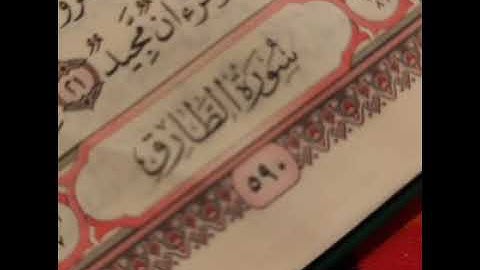 قُرْءَانٌ مَّجِيدٌ ٢١
سُورَةُ الطَّارِقِ
٥٩٠